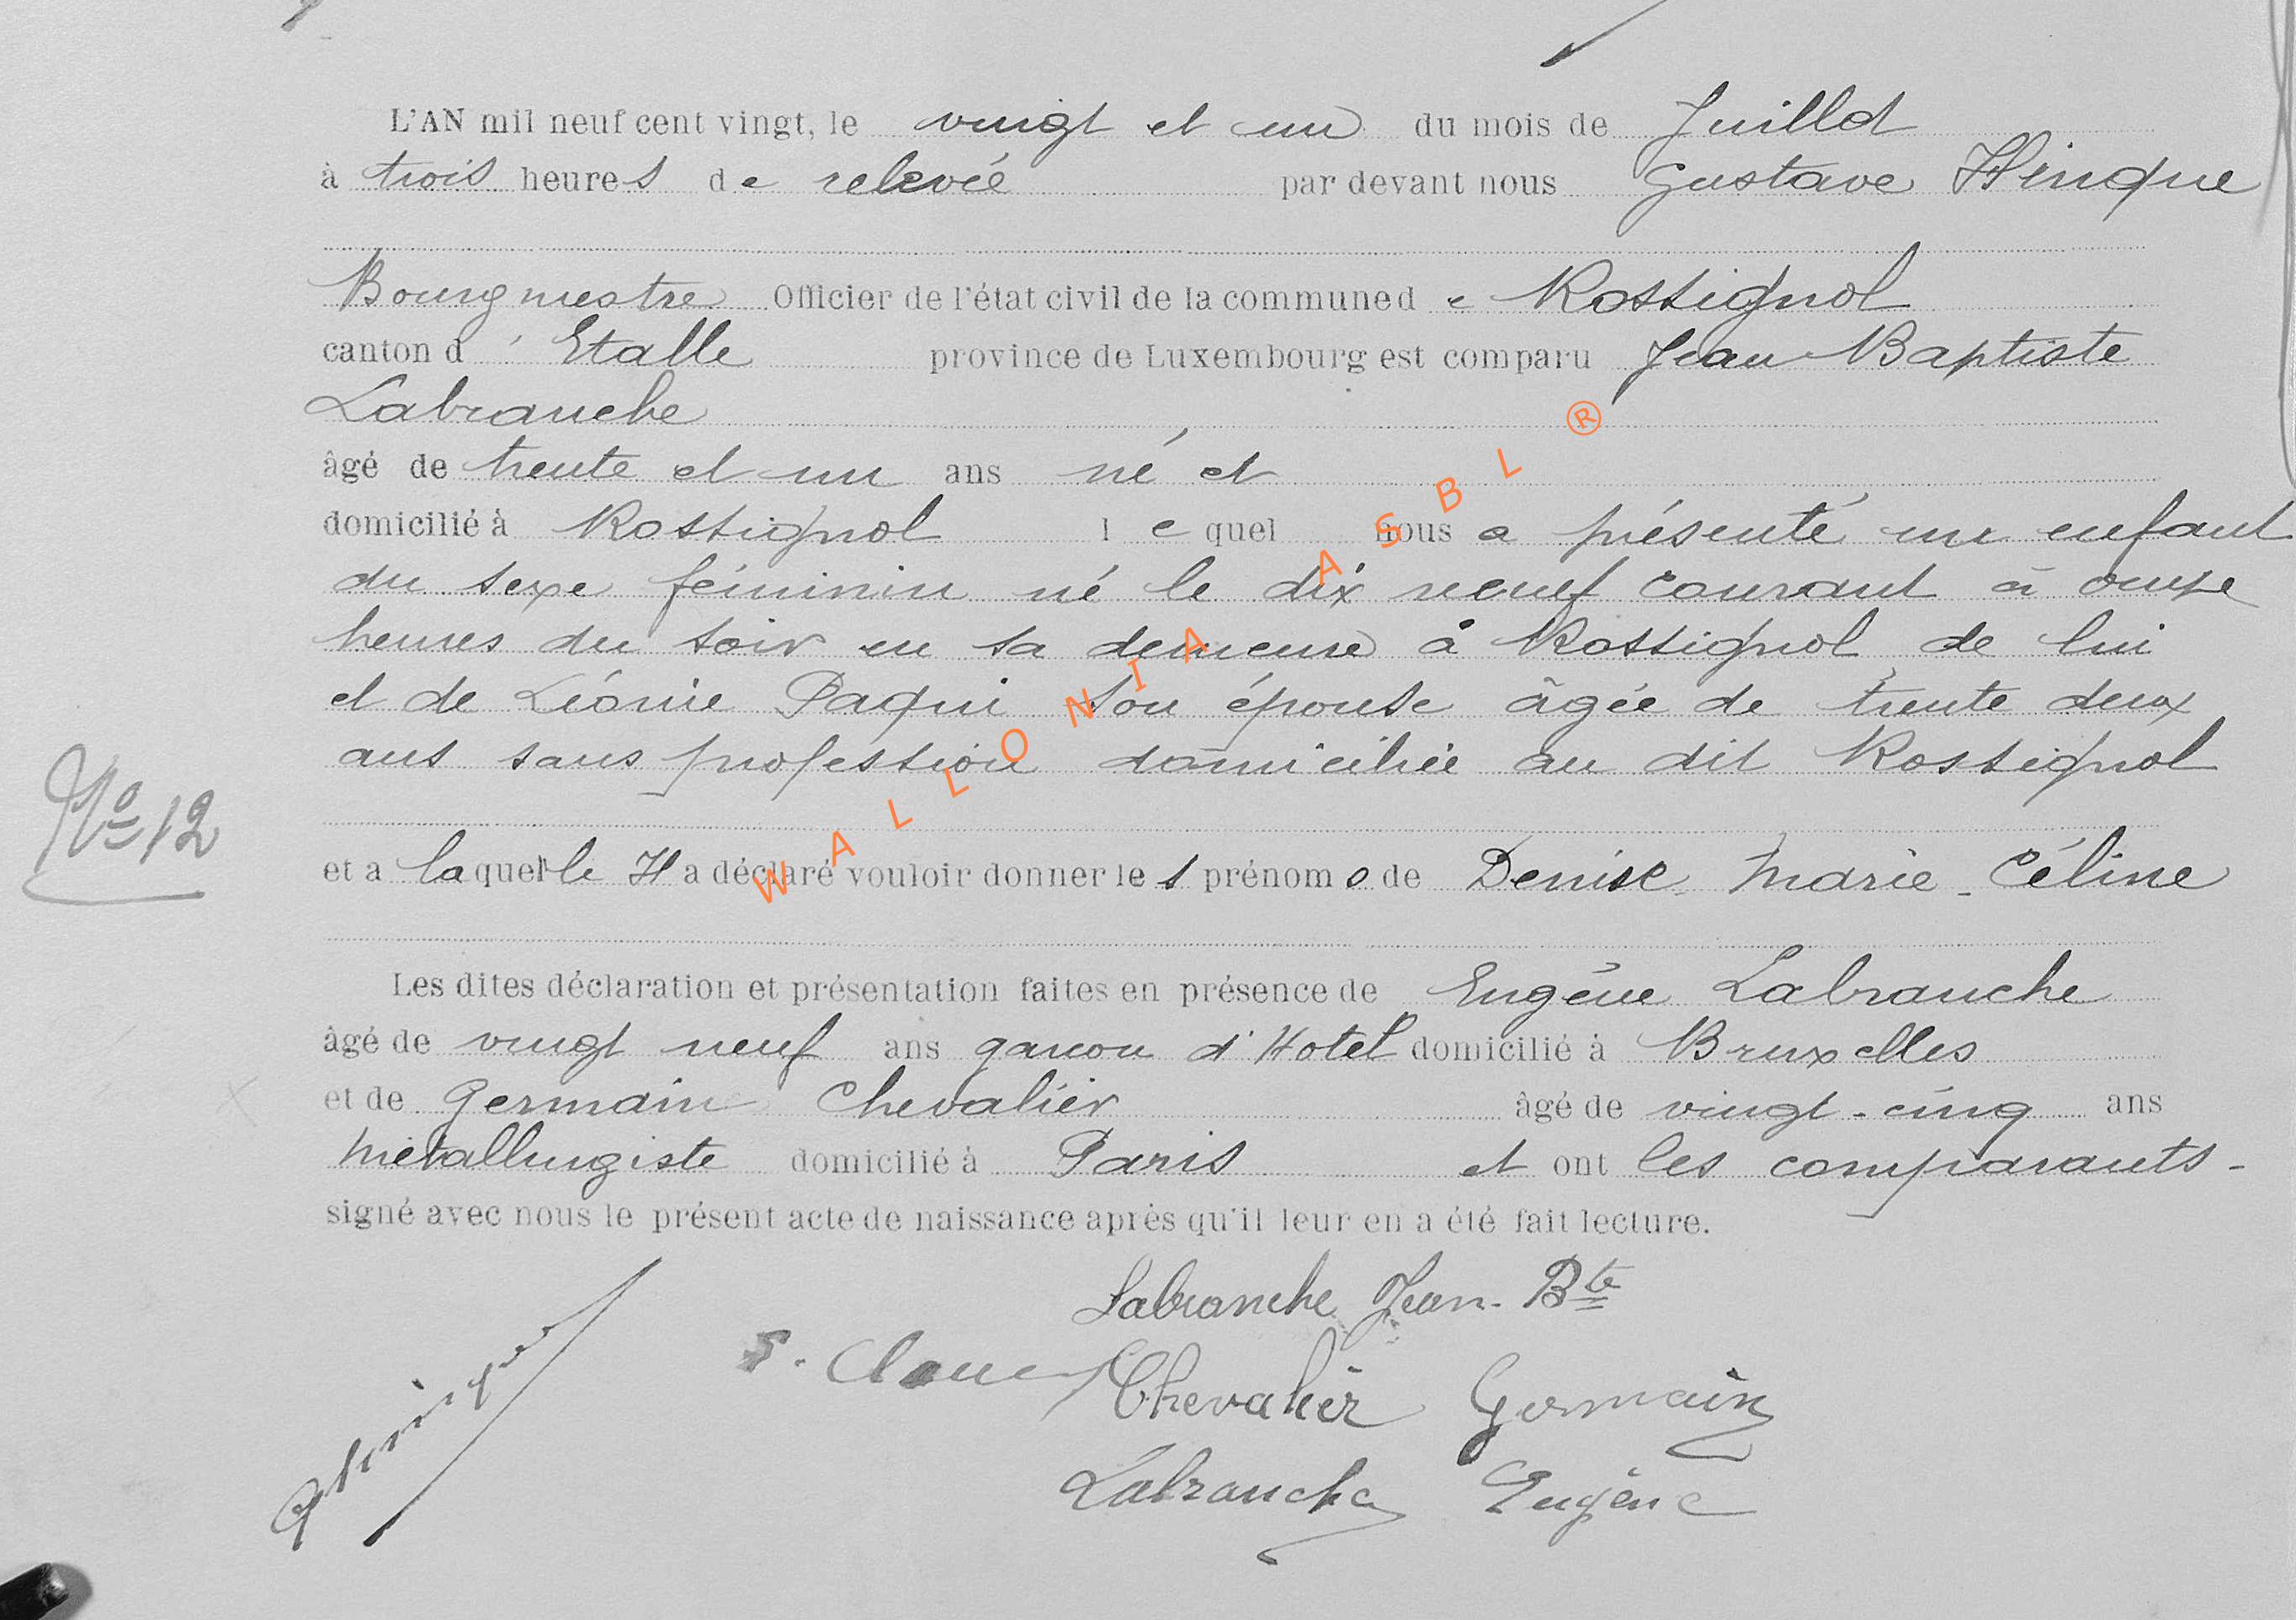 L'AN mil neuf cent vingt, le vingt et un du mois de Juillet
à trois heures de relevée par devant nous Gustave Hinque
Bourgmestre Officier de l'état civil de la commune de Rossignol
canton d'Etalle province de Luxembourg est comparu Jean Baptiste
Labranche
âgé de trente et un ans né et
domicilié à Rossignol lequel nous a présenté un enfant
du sexe féminin né le dix neuf courant à onze
heures du soir en sa demeure à Rossignol de lui
et de Léonie Paquis son épouse âgée de trente deux
ans sans profession domiciliée au dit Rossignol
No 12
et a laquelle Il a déclaré vouloir donner les prénoms de Denise Marie - Céline
Les dites déclaration et présentation faites en présence de Eugène Labranche
âgé de vingt neuf ans garcon d'Hotel domicilié à Bruxelles
et de Germain Chevalier âgé de vingt-cinq ans
métallurgiste domicilié à Paris et ont les comparants -
signé avec nous le présent acte de naissance après qu'il leur en a été fait lecture.
Labranche Jean-Bte
Chevalier Germain
Labranche Eugène
GHinque
WALLONIA ASBL ®